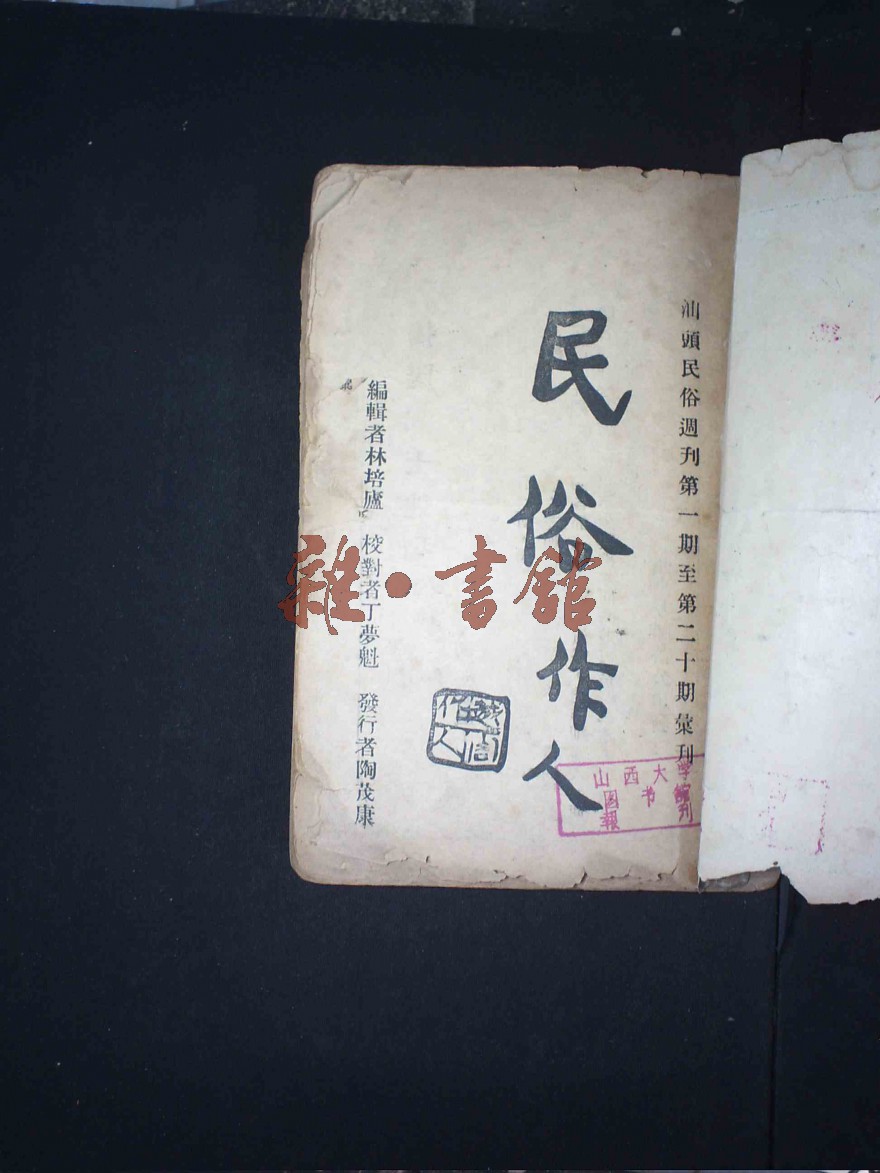 汕頭民俗週刊第一期至第二十期彙刊
民俗作人
編輯者林培廬 校對者丁夢魁 發行者陶茂康
山西大学
图书館
報刊
雜·書館